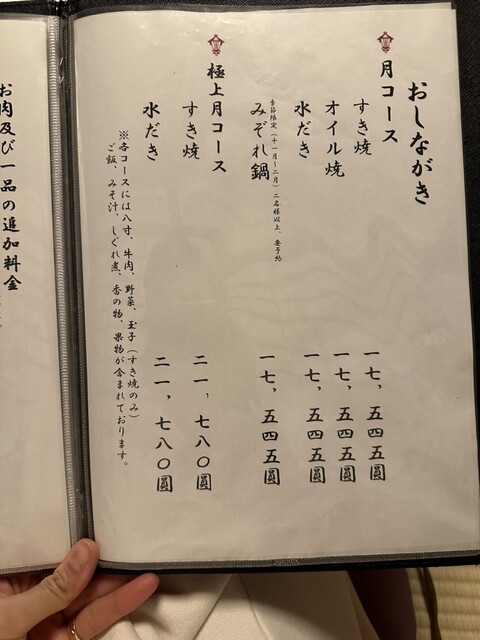 おしながき
月コース
すき焼 一七，五四五圓
オイル焼 一七，五四五圓
水だき 一七，五四五圓
季節限定（十一月～二月）二名様以上、要予約
みぞれ鍋 一七，五四五圓
極上月コース
すき焼 二一，七八〇圓
水だき 二一，七八〇圓
※各コースには八寸、牛肉、野菜、玉子（すき焼のみ）
ご飯、みそ汁、しぐれ煮、香の物、果物が含まれております。
お肉及び一品の追加料金